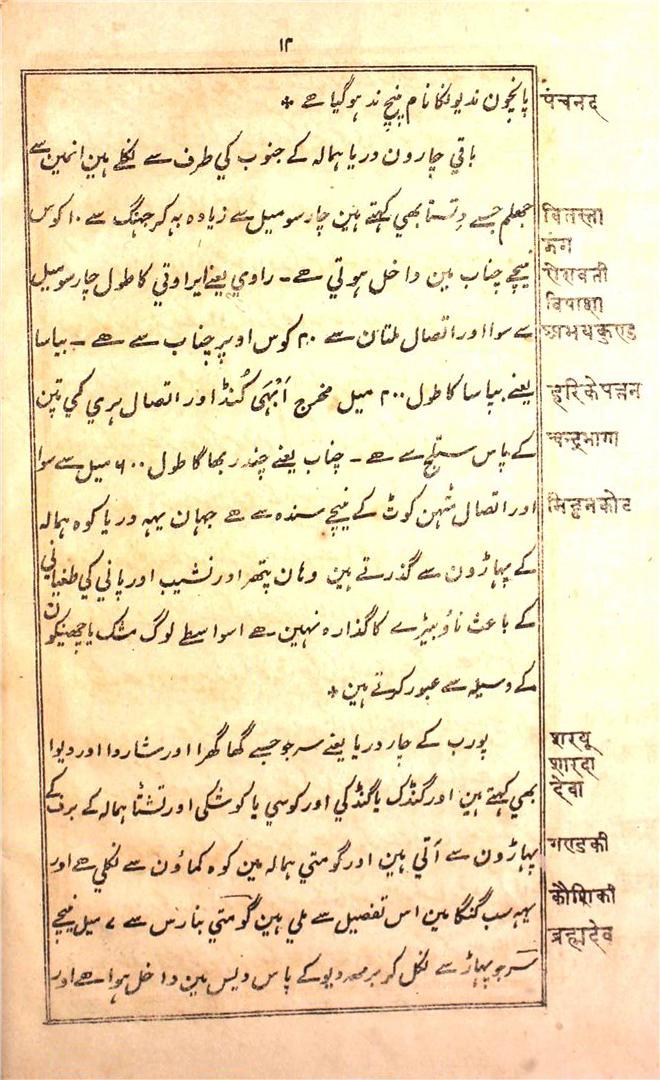 ۱۴
پانچون ندیونکا نام پنچ ند ہوگیا ہے *
पंचनद
باقي چارون دریا ہمالہ کے جنوب کي طرف سے نکلے ہین انمین سے
جھلم جسے وتستا بھي کہتے ہین چار سو میل سے زیادہ بہ کر جھنگ سے ۱۰ کوس
वितस्ता
झंग
نیچے چناب مین داخل ہوتي ہے ۔ راوي یعنے ایراوتي کا طول چار سو میل
ऐरावती
विपाशा
سے سوا اور اتصال ملتان سے ۲۰ کوس اوپر چناب سے ہے ۔ بیاسا
یعنے بپاسا کا طول ۲۰۰ میل مخرج اَبْہَی کُنڈ اور اتصال ہري کي پتن
हरिकेपत्तन
کے پاس ستلج سے ہے ۔ چناب یعنے چندر بھاگا طول ۶۰۰ میل سے سوا
चन्द्रभागा
اور اتصال مٹہن کوٹ کے نیچے سندہ سے ہے جہان یہہ دریا کوہ ہمالہ
کے پہاڑون سے گذرتے ہین وہان پتھر اور نشیب اور پاني کي طغیاني
کے باعث ناؤ بیڑے کا گذارہ نہین ہے اسواسطے لوگ مشک یا چھینکون
کے وسیلہ سے عبور کرتے ہین *
پورب کے چار دریا یعنے سرجو جسے گھاگھرا اور شاردا اور دیوا
शरयू
शारदा
देवा
بھي کہتے ہین اور گنڈک یا گنڈکي اور کوسي یا کوشکی اور تشٹا ہمالہ کے برف کے
پہاڑون سے آتي ہین اور گومتي ہمالہ مین کوہ کماؤن سے نکلي ہے اور
गण्डकी
یہہ سب گنگا مین اس تفصیل سے ملي ہین گومتي بنارس سے ۷ میل نیچے
कौशिकी
سرجو پہاڑ سے نکل کر برمھدیو کے پاس دیس مین داخل ہوا ہے اور
ब्रह्मदेव